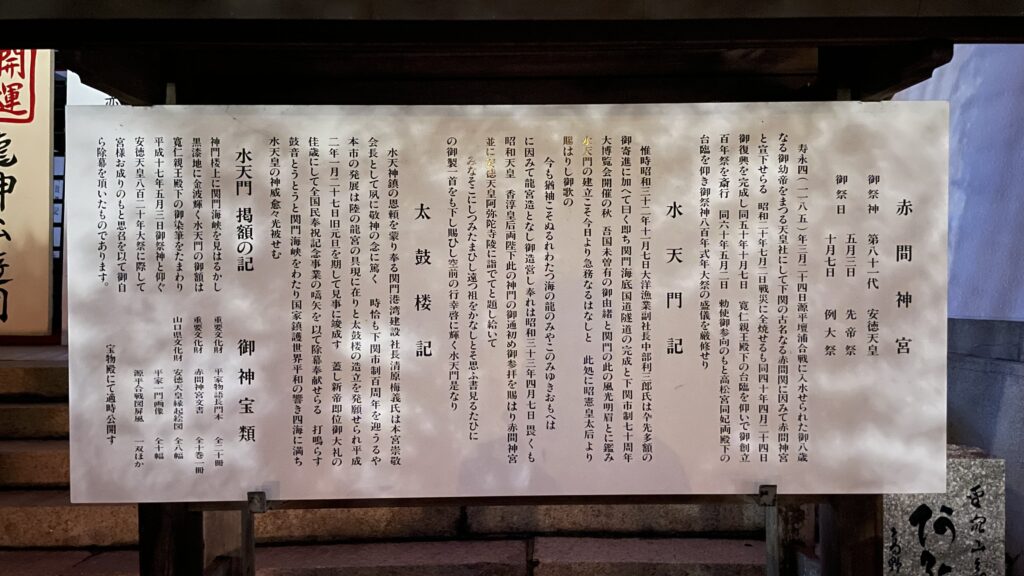 赤間神宮
御祭神 第八十一代 安徳天皇
御祭日 五月三日 先帝祭
十月七日 例大祭
寿永四(一一八五)年三月二十四日源平壇浦合戦に入水せられた御八歳
なる御幼帝をまつる天皇社にして下関の古名なる赤間関に因みて赤間神宮
と宣下せらる 昭和二十年七月二日戦災に全焼せるも同四十年四月二十四日
御復興を完成し同五十年十月七日 寛仁親王殿下の台臨を仰いで御創立
百年祭を斎行 同六十年五月二日 勅使御参向のもと高松宮同妃両殿下の
台臨を仰き御祭神八百年式年大祭の盛儀を厳修せり
水天門記
惟時昭和三十二年十一月七日大洋漁業副社長中部利三郎氏は今先多額の
御寄進に加へて曰く即ち関門海底国道隧道の完成と下関市制七十周年
大博覧会開催の秋 吾国未曽有の御由緒と関門の此の風光明眉とに鑑み
水天門の建立こそ今日より急務なるはなしと 此処に昭憲皇太后より
賜はりし御歌の
今も猶袖こそぬるれわたつ海の龍のみやこのみゆきおもへは
に因みて龍宮造となし御造営し奉れは昭和三十三年四月七日畏くも
昭和天皇 香淳皇后両陛下此の神門の御通初め御参拝を賜はり赤間神宮
並に安徳天皇阿弥陀寺陵に詣でてと題し給いて
みなそこにしつみたまひし遠つ祖をかなしとそ思ふ書見るたひに
の御製一首をも下し賜ひし空前の行幸啓に輝く水天門是なり
太鼓楼記
水天神鎮の恩頼を蒙り奉る関門港湾建設社長清原梅義氏は本宮崇敬
会長として夙に敬神の念に篤く 時恰も下関市制百周年を迎うるや
本市の発展は陸の龍宮の具現に在りと太鼓楼の造立を発願せられ平成
二年一月二十七日旧元旦を期して見事に竣成す 蓋し新帝即位御大礼の
佳歳にして全国民奉祝記念事業の嚆矢を以て除幕奉献せらる 打鳴らす
鼓音とうとうと関門海峡をわたり国家鎮護世界平和の響き四海に満ち
水天皇の神威愈々光被せむ
水天門 掲額の記
神門楼上に関門海峡を見はるかし
黒漆地に金波輝く水天門の御額は
寛仁親王殿下の御染筆をたまわり
平成十七年五月三日御祭神と仰ぐ
安徳天皇八百二十年大祭に際して
宮様お成りのもと思召を以て御自
ら除幕を頂いたものであります。
御神宝類
重要文化財 平家物語長門本 全二十冊
重要文化財 赤間神宮文書 全十巻一冊
山口県文化財 安徳天皇縁起絵図 全八幅
平家一門画像 全十幅
源平合戦図屏風 一双ほか
宝物殿にて適時公開す
開運